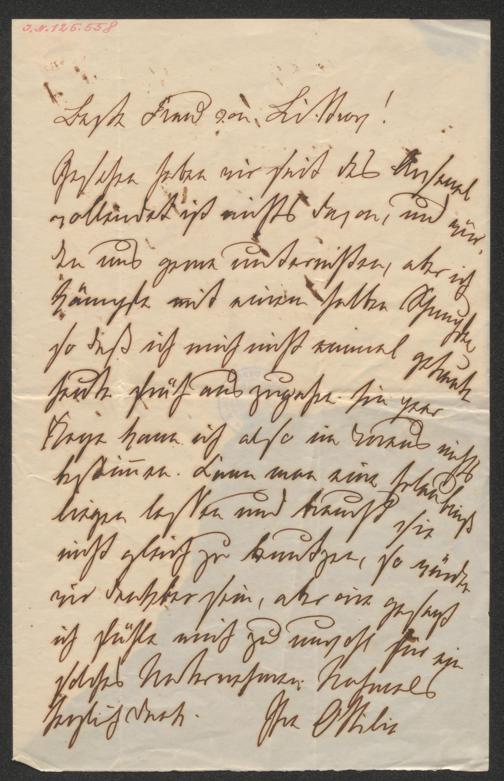 I.N. 126.558
Beste Frau von Littrow!
Gesehen haben wir seit das Arsenal
vollendet ist nichts davon, und wür-
den uns gerne unterrichten, aber ich
kämpfe mit einem halben Schnupfen
so daß ich mich nicht einmal getraute
heute früh auszugehen. Ein paar
Tage kann ich also im Voraus nichts
bestimmen. Kann man eine Erlaubniß
liegen lassen und braucht sie
nicht gleich zu benutzen, so würden
wir dankbar sein, aber wie gesagt
ich fühle mich zu unwohl für ein
solches Unternehmen. Nochmals
herzlich Dank. Ihre Ottilie